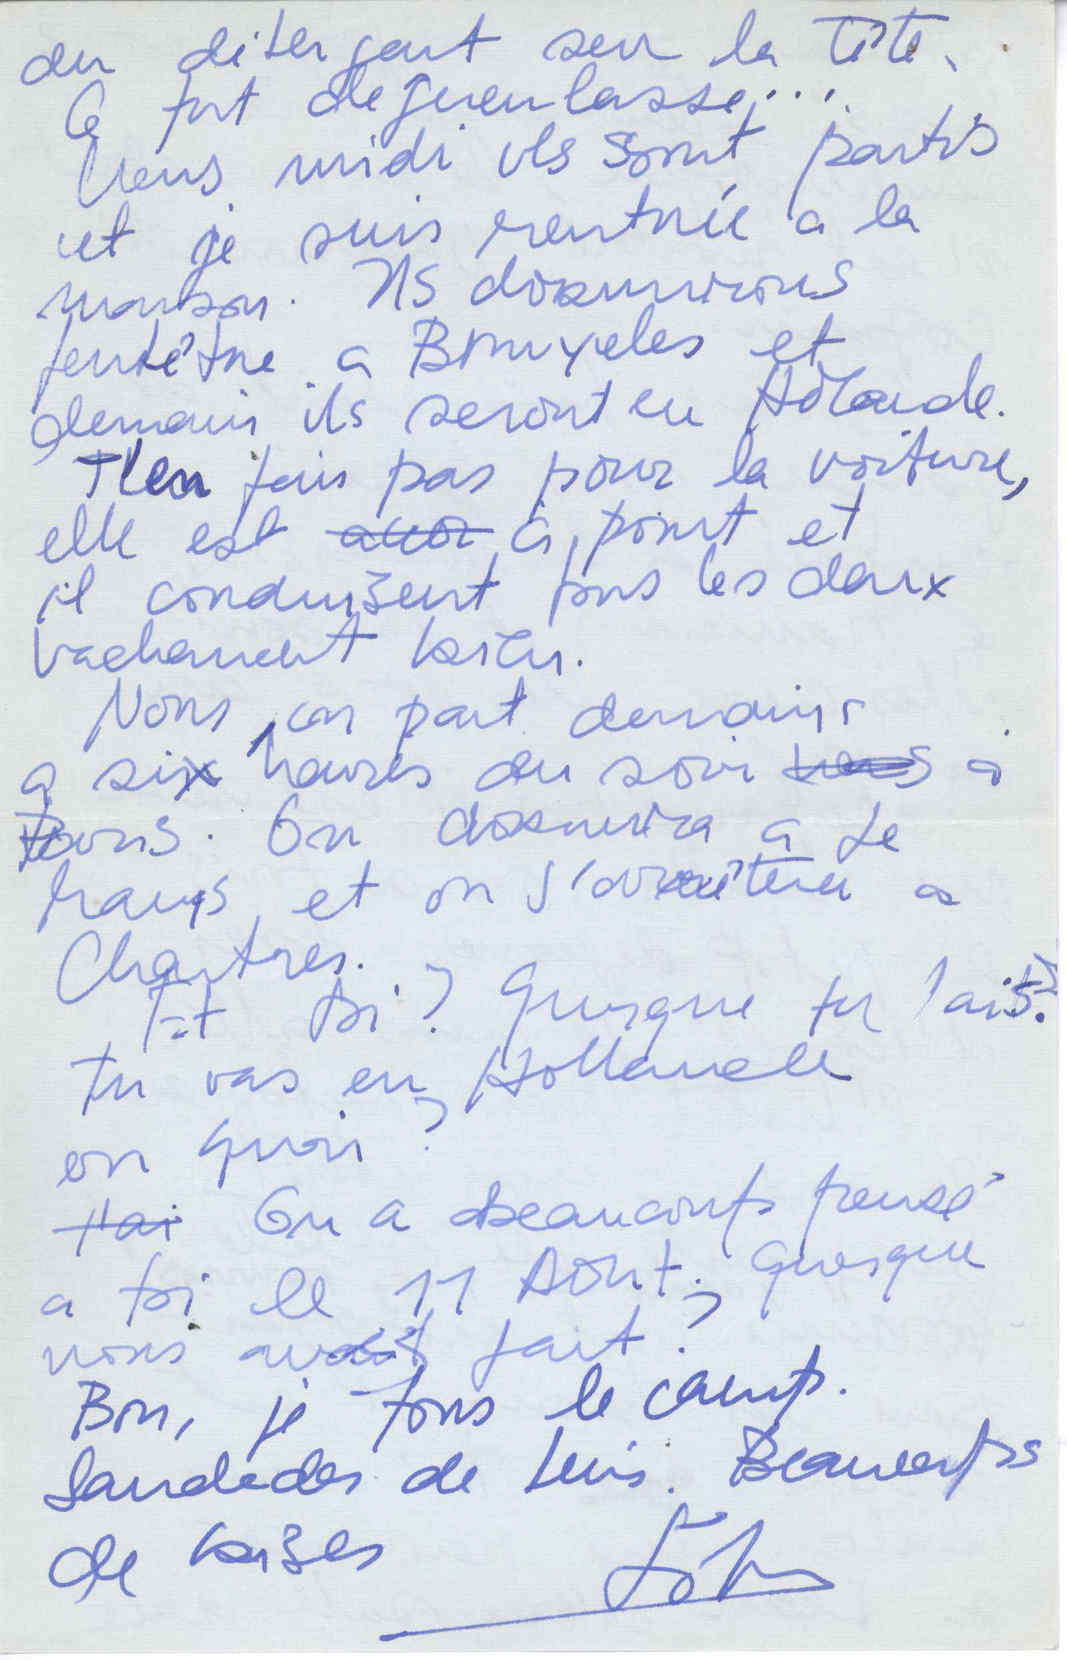 du détergant sur la tête.
C fut degueulasse...
Vers midi ils sont partis
et je suis rentrée a la
maison. Ils dormirons
peutêtre a Bruxeles et
demain ils seront en Hôlande.
T'en fais pas pour la voiture,
elle est à point et
il conduisent tous les deux
vachement bien.
Nous, on part demain
a six heures du soir à
Paris. On dormira a Le
Mans et on s'arrêtera a
Chartres.
Et toi? Quesque tu fais?
Tu vas en Hollande
ou quoi?
J'ai On a beaucoup pensé
a toi le 11 Août. Quesque
vous avait fait?
Bon, je fous le camp.
Saudades de Luis. Beaucoups
de baises